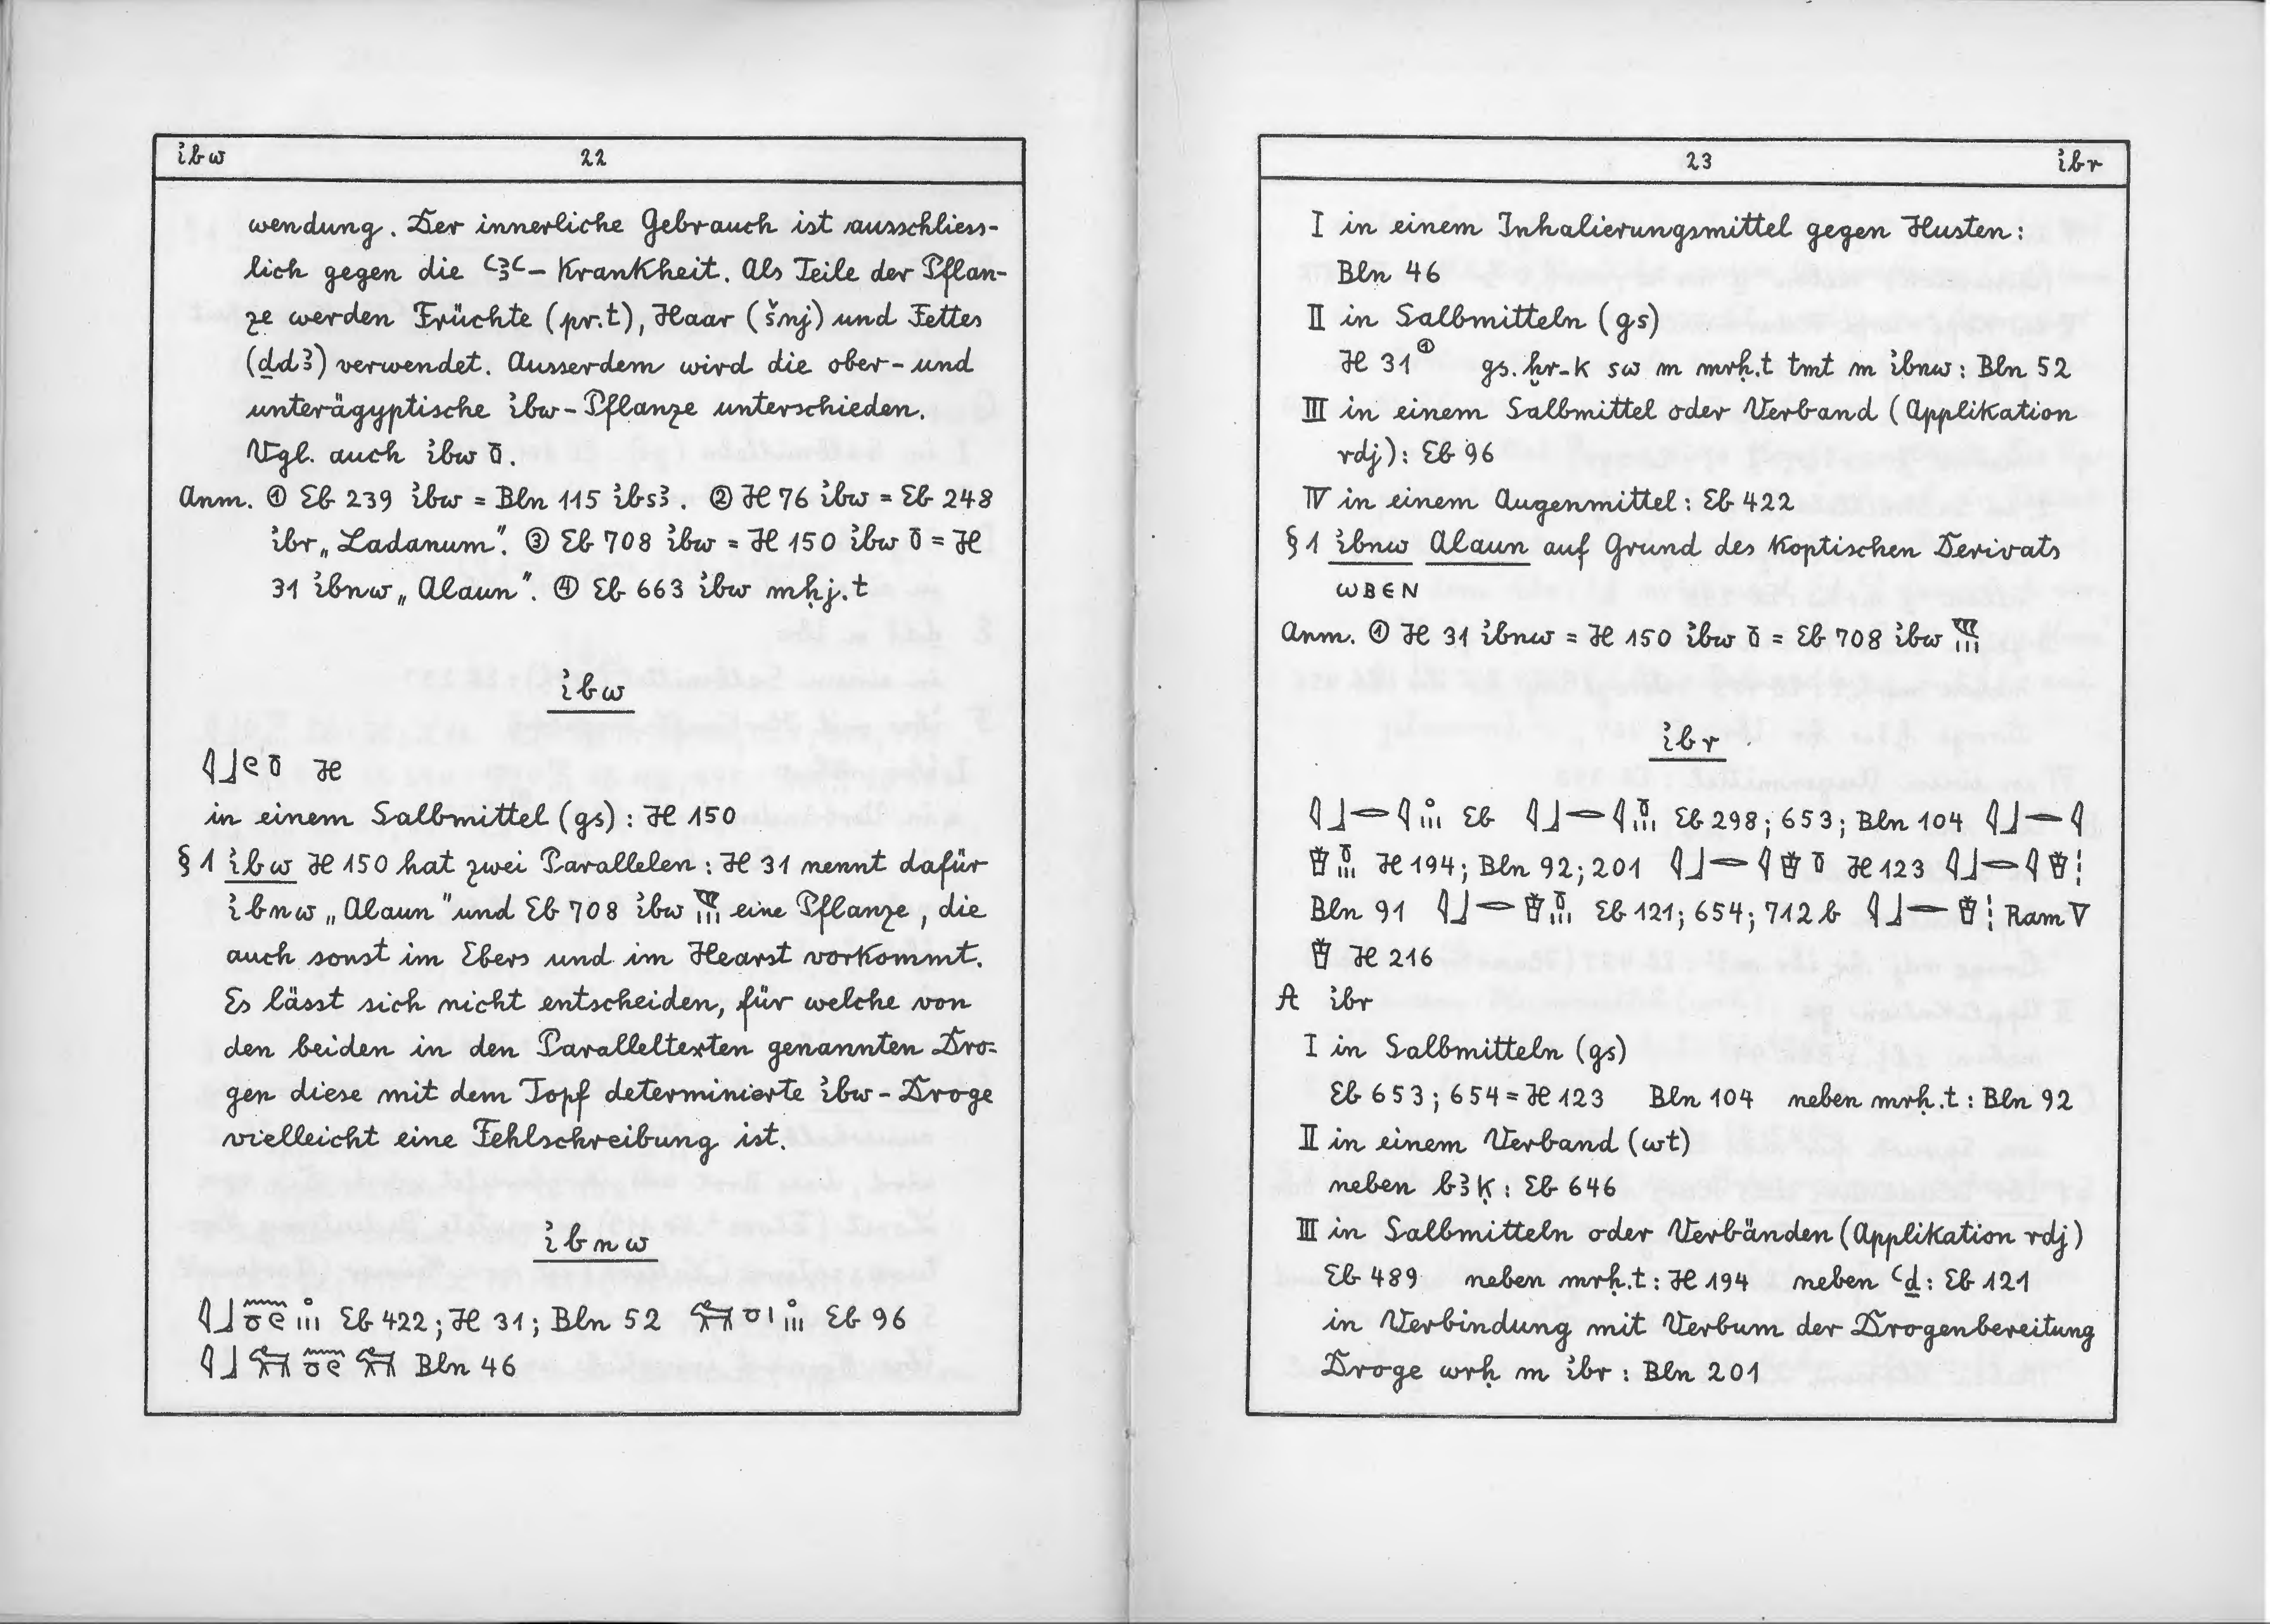 ỉbw 22
wendung. Der innerliche Gebrauch ist ausschliess-
lich gegen die ꜥꜣꜥ-Krankheit. Als Teile der Pflan-
ze werden Früchte (pr.t), Haar (šnj) und Fettes
(ḏdꜣ) verwendet. Ausserdem wird die ober- und
unterägyptische ỉbw-Pflanze unterschieden.
Vgl. auch ỉbw 𓏌.
Anm. ① Eb 239 ỉbw = Bln 115 ỉbsꜣ. ② H 76 ỉbw = Eb 248
ỉbr „Ladanum". ③ Eb 708 ỉbw = H 150 ỉbw 𓏌 = H
31 ỉbnw „Alaun". ④ Eb 663 ỉbw mḥj.t
ỉbw
𓇋𓃀𓏲𓏌 H
in einem Salbmittel (gs) : H 150
§ 1 ỉbw H 150 hat zwei Parallelen : H 31 nennt dafür
ỉbnw „Alaun" und Eb 708 ỉbw 𓆰𓏥 eine Pflanze, die
auch sonst im Ebers und im Hearst vorkommt.
Es lässt sich nicht entscheiden, für welche von
den beiden in den Paralleltexten genannten Dro=
gen diese mit dem Topf determinierte ỉbw-Droge
vielleicht eine Fehlschreibung ist.
ỉbnw
𓇋𓃀𓈖𓏌𓏲𓏥 Eb 422; H 31; Bln 52 Eb 96
Bln 46
23 ỉbr
I in einem Inhalierungsmittel gegen Husten :
Bln 46
II in Salbmitteln (gs)
H 31① gs.ḫr-k sw m mrḥ.t tmt m ỉbnw : Bln 52
III in einem Salbmittel oder Verband (Applikation
rdj) : Eb 96
IV in einem Augenmittel : Eb 422
§ 1 ỉbnw Alaun auf Grund des koptischen Derivats
ⲱⲃⲉⲛ
Anm. ① H 31 ỉbnw = H 150 ỉbw 𓏌 = Eb 708 ỉbw 𓆰𓏥
ỉbr
𓇋𓃀𓂋𓇋𓏥 Eb 𓇋𓃀𓂋𓇋𓏌𓏥 Eb 298; 653; Bln 104 𓇋𓃀𓂋𓇋
𓏌𓏥 H 194; Bln 92; 201 𓇋𓃀𓂋𓇋 𓏌 H 123 𓇋𓃀𓂋𓇋
Bln 91 𓇋𓃀𓂋 𓏌𓏥 Eb 121; 654; 712 b 𓇋𓃀𓂋 Ram V
H 216
A ỉbr
I in Salbmitteln (gs)
Eb 653; 654 = H 123 Bln 104 neben mrḥ.t : Bln 92
II in einem Verband (wt)
neben bꜣḳ : Eb 646
III in Salbmitteln oder Verbänden (Applikation rdj)
Eb 489 neben mrḥ.t : H 194 neben ꜥḏ : Eb 121
in Verbindung mit Verbum der Drogenbereitung
Droge wrḥ m ỉbr : Bln 201